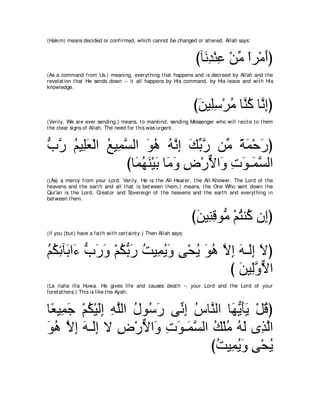 (Hakim) means decided or confirmed, which cannot be changed or altered. Allah says:
(أَمْراً مِّنْ عِنْدِنَآ)
(As a command from Us.) meaning, everything that happens and is decreed by Allah and the
revelation that He sends down -- it all happens by His command, by His leave and with His
knowledge.
(إِنَّا كُنَّا مُرْسِلِينَ)
(Verily, We are ever sending,) means, to mankind, sending Messenger who will recite to them
the clear signs of Allah. The need for this was urgent.
(رَحْمَةً مِّن رَّبِّكَ إِنَّهُ هُوَ السَّمِيعُ الْعَلِيمُ رَبُّ
السَّمَـوَتِ وَالاٌّرْضِ وَمَا بَيْنَهُمَآ)
((As) a mercy from your Lord. Verily, He is the All-Hearer, the All-Knower. The Lord of the
heavens and the earth and all that is between them,) means, the One Who sent down the
Qur'an is the Lord, Creator and Sovereign of the heavens and the earth and everything in
between them.
(إِن كُنتُمْ مُّوقِنِينَ)
(if you (but) have a faith with certainty.) Then Allah says:
(لاَ إِلَـهَ إِلاَّ هُوَ يُحْىِ وَيُمِيتُ رَبُّكُمْ وَرَبُّ ءَابَآئِكُمُ
الاٌّوَّلِينَ )
(La ilaha illa Huwa. He gives life and causes death -- your Lord and the Lord of your
forefathers.) This is like the Ayah:
(قُلْ يَأَيُّهَا النَّاسُ إِنِّى رَسُولُ اللَّهِ إِلَيْكُمْ جَمِيعًا
الَّذِى لَهُ مُلْكُ السَّمَـوَتِ وَالاٌّرْضِ لا إِلَـهَ إِلاَّ هُوَ
يُحْىِ وَيُمِيتُ)